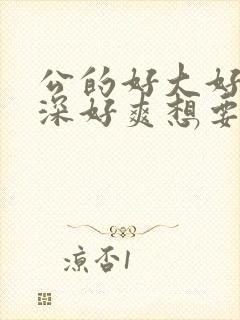 公的好大好
深好爽想要
凉否1